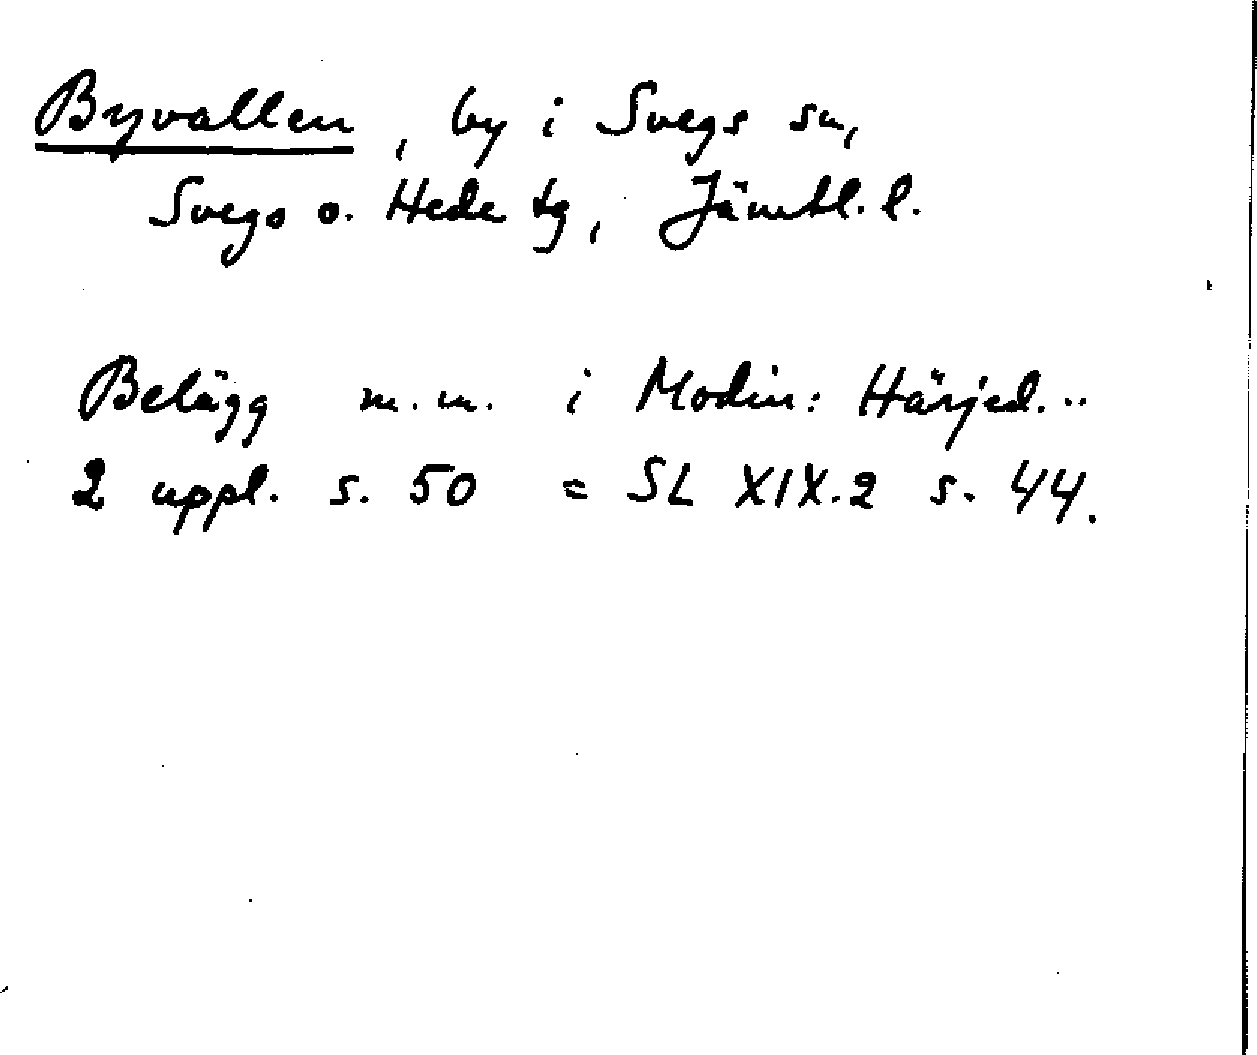 Byvallen, by i Svegs sn,
Svegs o. Hede tg, Jämtl. l.
Belägg m.m. i Modin: Härjed...
2 uppl. s. 50 = SL XIX.2 s. 44.